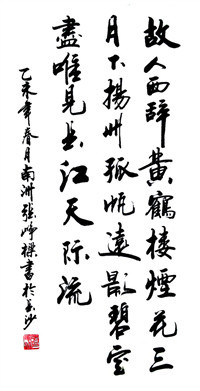 故人西辭黃鶴樓煙花三
月下揚州孤帆遠影碧空
盡唯見長江天際流
乙未年春月南洲張崢嶸書於長沙